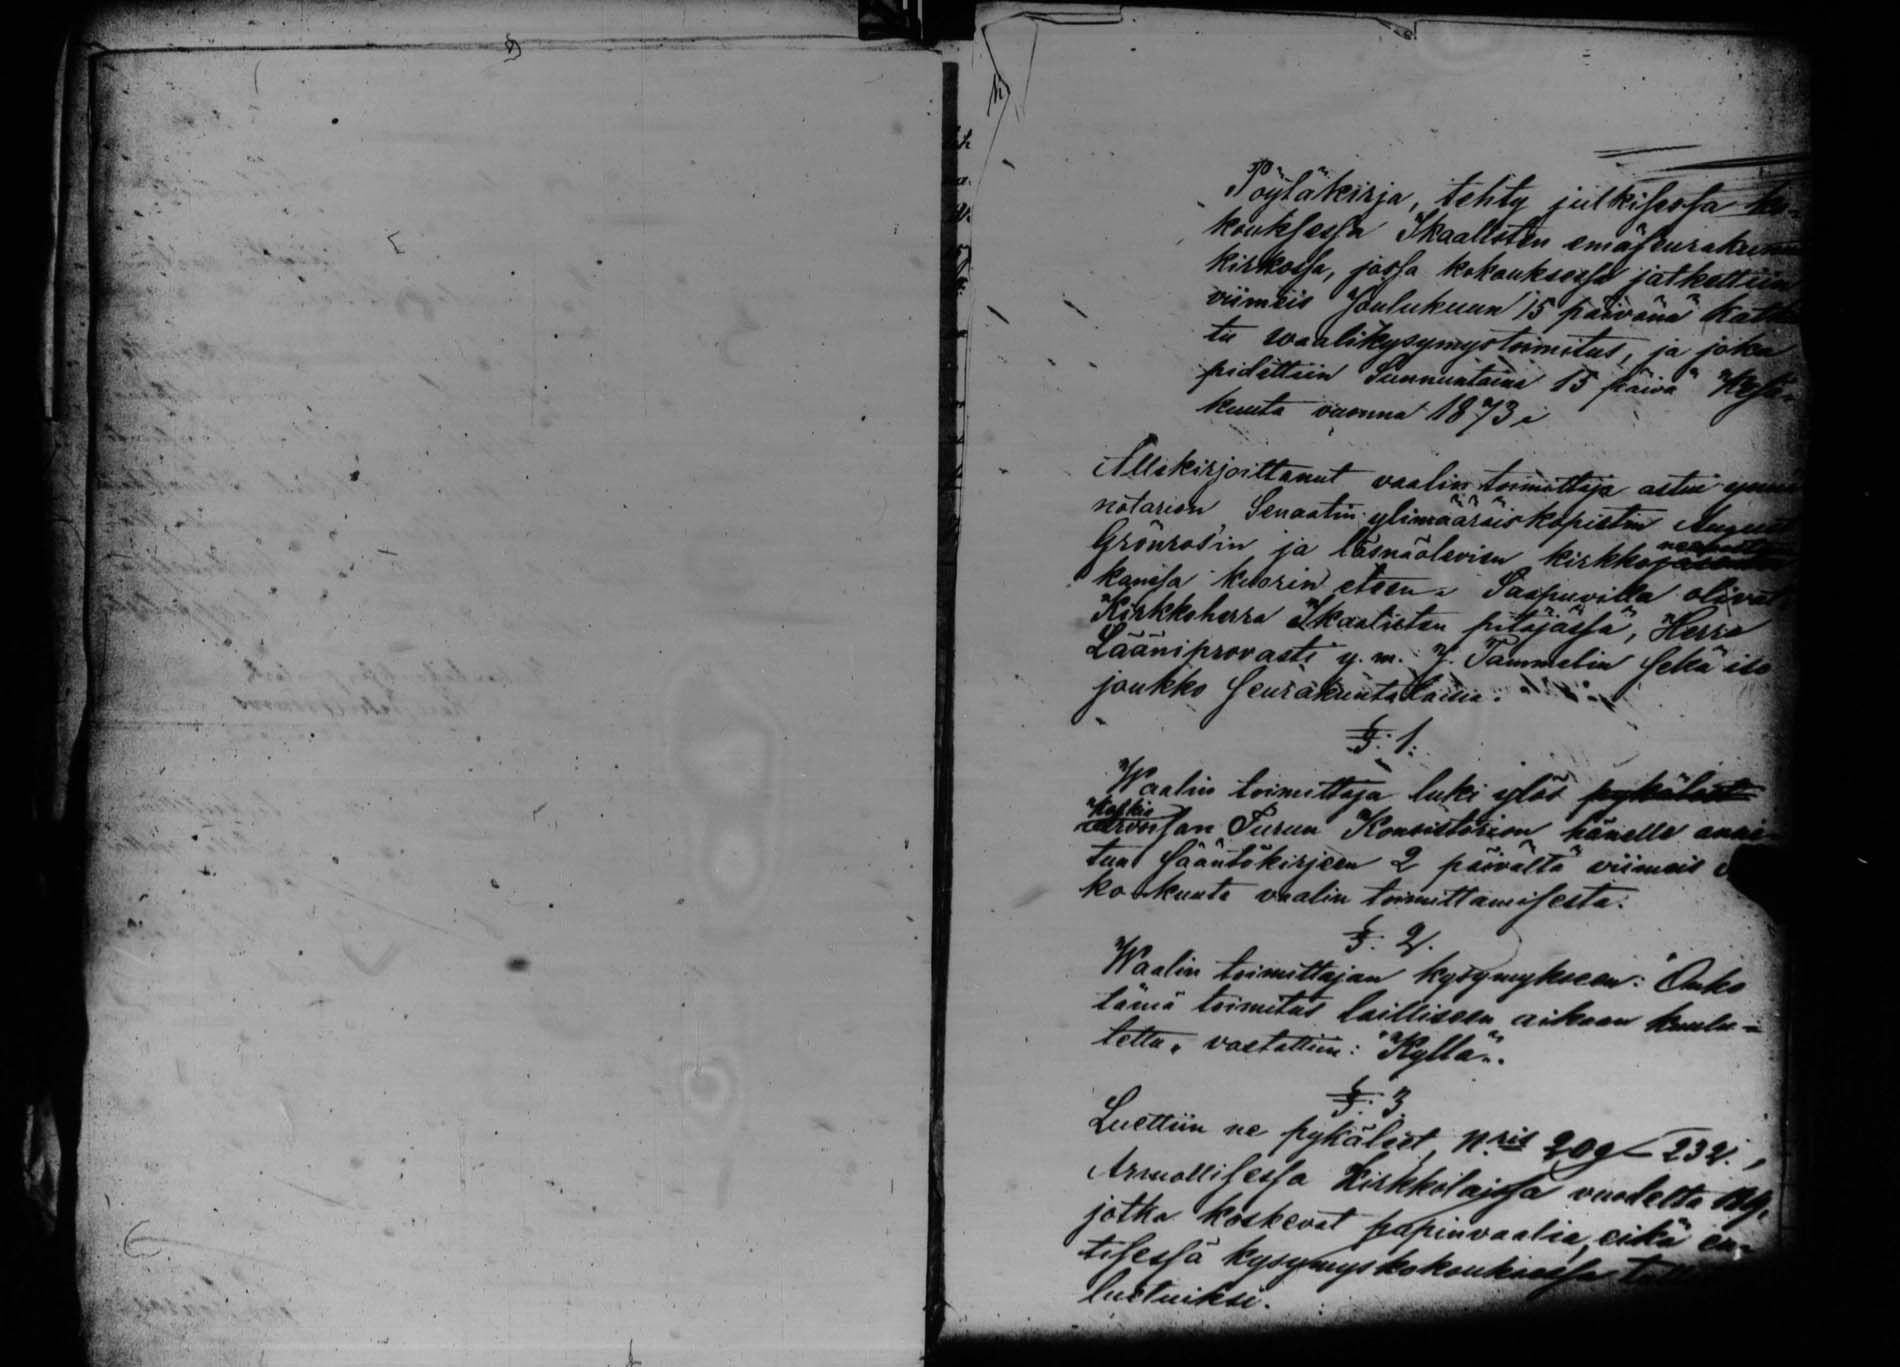 Pöytäkirja, tehty julkisessa ko-
kouksessa Ikaalisten emäseurakunnan
kirkossa, jossa kokouksessa jatkettiin
viimeis Joulukuun 15 päivänä katkais
tu waalikysymystoimitus, ja joka
pidettiin Sunnuntaina 15 päivä Kesä-
kuuta vuonna 1873.
Allekirjoittanut vaalin toimittaja astui ynnä
notarion Senaatin ylimääräiskopistin August
Grönros'in ja läsnäolevien kirkko
kanssa kuorin eteen. Saapuvilla olivat
Kirkkoherra Ikaalisten pitäjässä, Herra
Lääniprovasti y. m. J. Tammelin sekä iso
joukko Seurakuntalaisia.
§. 1.
Waalin toimittaja luki ylös pykäleet
Korkia
arvoisan Turun Konsistorion hänelle anne-
tun sääntökirjeen 2 päivältä viimeis
kokuuta vaalin toimittamisesta.
§. 2.
Waalin toimittajan kysymykseen: "Onko
tämä toimitus lailliseen aikaan kuulu-
tettu" vastattiin: "Kyllä".
§. 3.
Luettiin ne pykäleet, N:ris 209-232,
Armollisessa Kirkkolaissa vuodelta 1869,
jotka koskevat papinvaalia, eikä en-
tisessä kysymyskokouksessa
luetuiksi.